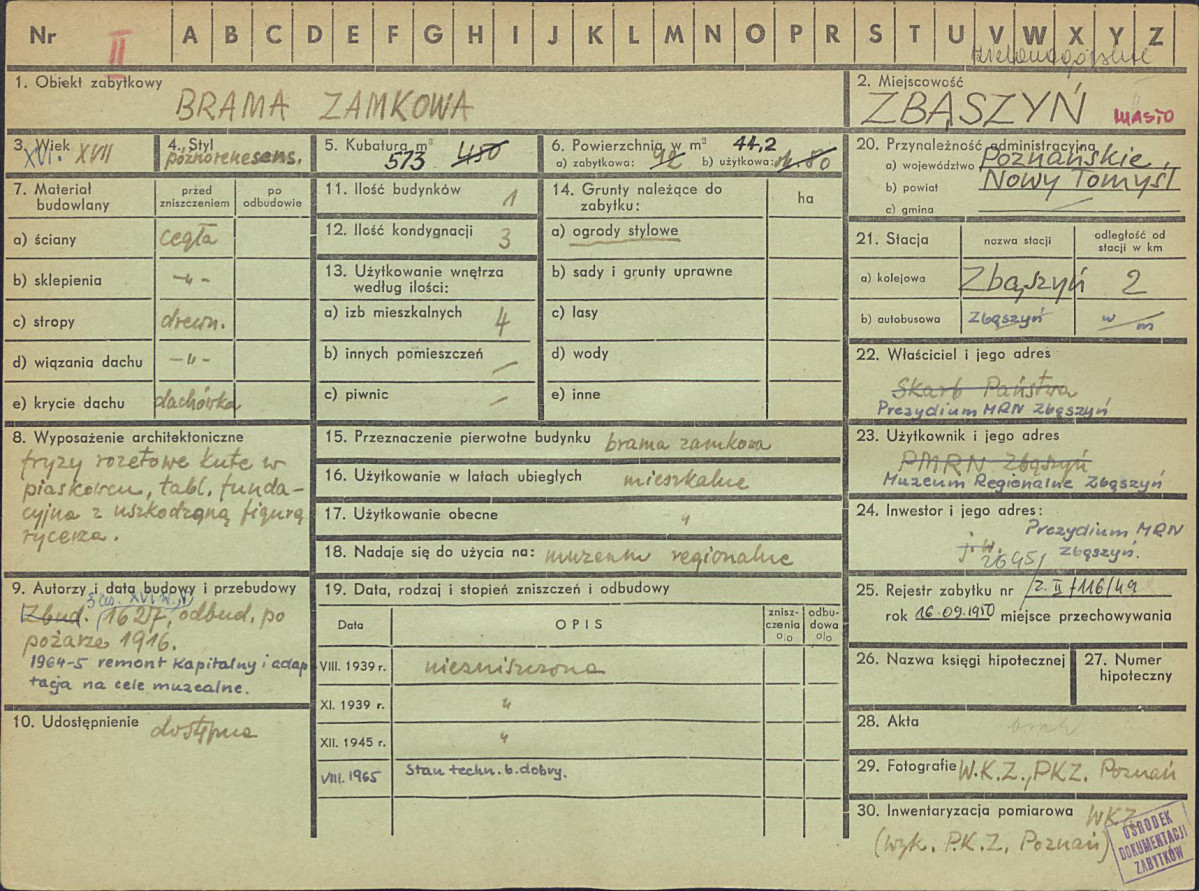 Nr II A B C D E F G H I J K L M N O P R S T U V W X Y Z
zielonogórskie
1. Obiekt zabytkowy
BRAMA ZAMKOWA
2. Miejscowość
ZBĄSZYŃ MIASTO
3. Wiek
XVI. XVII
4. Styl
późnorenesans.
5. Kubatura m³
573 450
6. Powierzchnia w m² 44,2
a) zabytkowa: 92 b) użytkowa:
20. Przynależność administracyjna
a) województwo Poznańskie,
b) powiat Nowy Tomyśl
c) gmina
7. Materiał budowlany
przed zniszczeniem
po odbudowie
a) ściany cegła
b) sklepienia -"-
c) stropy drewn.
d) wiązania dachu -"-
e) krycie dachu dachówka
11. Ilość budynków 1
12. Ilość kondygnacji 3
13. Użytkowanie wnętrza
według ilości:
a) izb mieszkalnych 4
b) innych pomieszczeń –
c) piwnic –
14. Grunty należące do
zabytku:
ha
a) ogrody stylowe
b) sady i grunty uprawne
c) lasy
d) wody
e) inne
21. Stacja
nazwa stacji
odległość od
stacji w km
a) kolejowa Zbąszyń 2
b) autobusowa Zbąszyń w/m
22. Właściciel i jego adres
Skarb Państwa
Prezydium MRN Zbąszyń
23. Użytkownik i jego adres
PMRN Zbąszyń
Muzeum Regionalne Zbąszyń
24. Inwestor i jego adres:
Prezydium MRN
j.w. Zbąszyń.
2645/
25. Rejestr zabytku nr 2. II/116/49
rok 16.09.1950 miejsce przechowywania
26. Nazwa księgi hipotecznej
27. Numer
hipoteczny
28. Akta
brak
29. Fotografie W.K.Z., PKZ. Poznań
30. Inwentaryzacja pomiarowa WKZ
(wyk. P.K.Z. Poznań)
OŚRODEK
DOKUMENTACJI
ZABYTKÓW
8. Wyposażenie architektoniczne
fryzy rozetowe kute w
piaskowcu, tabl. funda-
cyjna z uszkodzoną figurą
rycerza.
15. Przeznaczenie pierwotne budynku brama zamkowa
16. Użytkowanie w latach ubiegłych mieszkalne
17. Użytkowanie obecne "
18. Nadaje się do użycia na: muzeum regionalne
9. Autorzy i data budowy i przebudowy
Zbud. 1627, odbud. po
pożarze 1916.
1964-5 remont kapitalny i adap
tacja na cele muzealne.
10. Udostępnienie dostępna
19. Data, rodzaj i stopień zniszczeń i odbudowy
Data
OPIS
znisz-
czenia
%
odbu-
dowa
%
VIII. 1939 r. niezniszczona
XI. 1939 r. "
XII. 1945 r. "
VIII. 1965 Stan techn. b. dobry.